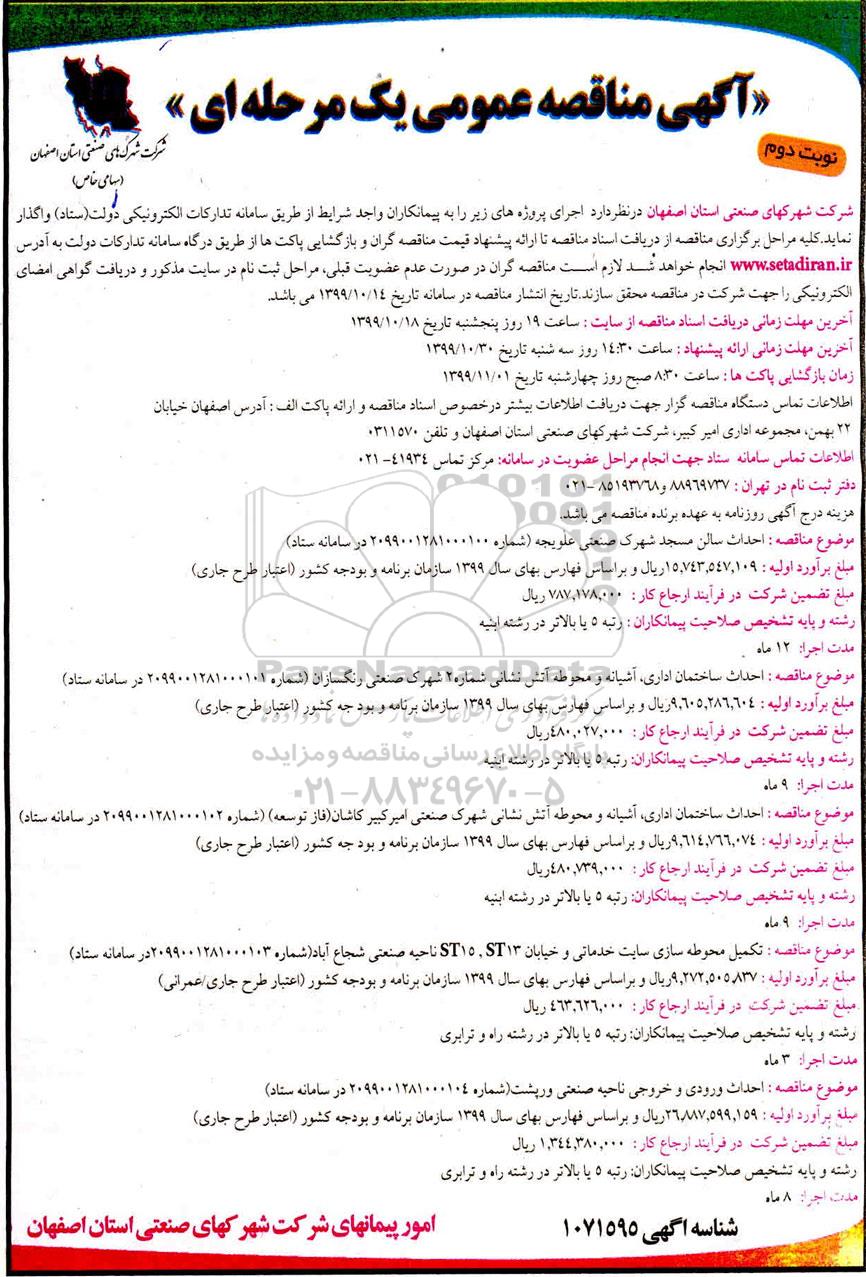 «آگهی مناقصه عمومی یک مرحله ای»
شرکت شهرک‌های صنعتی استان اصفهان
(سهامی خاص)
نوبت دوم
شرکت شهرکهای صنعتی استان اصفهان درنظردارد اجرای پروژه های زیر را به پیمانکاران واجد شرایط از طریق سامانه تدارکات الکترونیکی دولت(ستاد) واگذار
نماید.کلیه مراحل برگزاری مناقصه از دریافت اسناد مناقصه تا ارائه پیشنهاد قیمت مناقصه گران و بازگشایی پاکت ها از طریق درگاه سامانه تدارکات دولت به آدرس
www.setadiran.ir انجام خواهد شد لازم است مناقصه گران در صورت عدم عضویت قبلی، مراحل ثبت نام در سایت مذکور و دریافت گواهی امضای
الکترونیکی را جهت شرکت در مناقصه محقق سازند.تاریخ انتشار مناقصه در سامانه تاریخ ۱۳۹۹/۱۰/۱۴ می باشد.
آخرین مهلت زمانی دریافت اسناد مناقصه از سایت : ساعت ۱۹ روز پنجشنبه تاریخ ۱۳۹۹/۱۰/۱۸
آخرین مهلت زمانی ارائه پیشنهاد : ساعت ۱۴:۳۰ روز سه شنبه تاریخ ۱۳۹۹/۱۰/۳۰
زمان بازگشایی پاکت ها : ساعت ۸:۳۰ صبح روز چهارشنبه تاریخ ۱۳۹۹/۱۱/۰۱
اطلاعات تماس دستگاه مناقصه گزار جهت دریافت اطلاعات بیشتر درخصوص اسناد مناقصه و ارائه پاکت الف : آدرس اصفهان خیابان
۲۲ بهمن، مجموعه اداری امیر کبیر، شرکت شهرکهای صنعتی استان اصفهان و تلفن ۰۳۱۱۵۷۰
اطلاعات تماس سامانه ستاد جهت انجام مراحل عضویت در سامانه: مرکز تماس ۴۱۹۳۴- ۰۲۱
دفتر ثبت نام در تهران : ۸۸۹۶۹۷۳۷ و۸۵۱۹۳۷۶۸ -۰۲۱
هزینه درج آگهی روزنامه به عهده برنده مناقصه می باشد.
موضوع مناقصه : احداث سالن مسجد شهرک صنعتی علویجه (شماره ۲۰۹۹۰۰۱۲۸۱۰۰۰۱۰۰ در سامانه ستاد)
مبلغ برآورد اولیه : ۱۵,۷۴۳,۵۴۷,۱۰۹ریال و براساس فهارس بهای سال ۱۳۹۹ سازمان برنامه و بودجه کشور (اعتبار طرح جاری)
مبلغ تضمین شرکت در فرآیند ارجاع کار : ۷۸۷,۱۷۸,۰۰۰ ریال
رشته و پایه تشخیص صلاحیت پیمانکاران : رتبه ۵ یا بالاتر در رشته ابنیه
مدت اجرا: ۱۲ ماه
موضوع مناقصه : احداث ساختمان اداری، آشیانه و محوطه آتش نشانی شماره۲ شهرک صنعتی رنگسازان (شماره ۲۰۹۹۰۰۱۲۸۱۰۰۰۱۰۱ در سامانه ستاد)
مبلغ برآورد اولیه : ۹,۶۰۵,۲۸۶,۶۰۴ریال و براساس فهارس بهای سال ۱۳۹۹ سازمان برنامه و بود جه کشور (اعتبار طرح جاری)
مبلغ تضمین شرکت در فرآیند ارجاع کار : ۴۸۰,۰۲۷,۰۰۰ریال
رشته و پایه تشخیص صلاحیت پیمانکاران: رتبه ۵ یا بالاتر در رشته ابنیه
مدت اجرا: ۹ ماه
موضوع مناقصه : احداث ساختمان اداری، آشیانه و محوطه آتش نشانی شهرک صنعتی امیرکبیر کاشان(فاز توسعه) (شماره ۲۰۹۹۰۰۱۲۸۱۰۰۰۱۰۲ در سامانه ستاد)
مبلغ برآورد اولیه : ۹,۶۱۴,۷۶۶,۰۷۴ریال و براساس فهارس بهای سال ۱۳۹۹ سازمان برنامه و بود جه کشور (اعتبار طرح جاری)
مبلغ تضمین شرکت در فرآیند ارجاع کار : ۴۸۰,۷۳۹,۰۰۰ریال
رشته و پایه تشخیص صلاحیت پیمانکاران: رتبه ۵ یا بالاتر در رشته ابنیه
مدت اجرا: ۹ ماه
موضوع مناقصه : تکمیل محوطه سازی سایت خدماتی و خیابان ST۱۵ , ST۱۳ ناحیه صنعتی شجاع آباد(شماره ۲۰۹۹۰۰۱۲۸۱۰۰۰۱۰۳در سامانه ستاد)
مبلغ برآورد اولیه : ۹,۲۷۲,۵۰۵,۸۳۷ریال و براساس فهارس بهای سال ۱۳۹۹ سازمان برنامه و بودجه کشور (اعتبار طرح جاری/عمرانی)
مبلغ تضمین شرکت در فرآیند ارجاع کار : ۴۶۳,۶۲۶,۰۰۰ ریال
رشته و پایه تشخیص صلاحیت پیمانکاران: رتبه ۵ یا بالاتر در رشته راه و ترابری
مدت اجرا: ۳ ماه
موضوع مناقصه : احداث ورودی و خروجی ناحیه صنعتی ورپشت(شماره ۲۰۹۹۰۰۱۲۸۱۰۰۰۱۰۴ در سامانه ستاد)
مبلغ برآورد اولیه : ۲۶,۸۸۷,۵۹۹,۱۵۹ریال و براساس فهارس بهای سال ۱۳۹۹ سازمان برنامه و بودجه کشور (اعتبار طرح جاری)
مبلغ تضمین شرکت در فرآیند ارجاع کار : ۱,۳۴۴,۳۸۰,۰۰۰ ریال
رشته و پایه تشخیص صلاحیت پیمانکاران: رتبه ۵ یا بالاتر در رشته راه و ترابری
مدت اجرا: ۸ ماه
شناسه اگهی ۱۰۷۱۵۹۵
امور پیمانهای شرکت شهرکهای صنعتی استان اصفهان
ParsNamadData
پایگاه اطلاع رسانی مناقصه و مزایده
۰۲۱-۸۸۳۴۹۶۷۰-۵